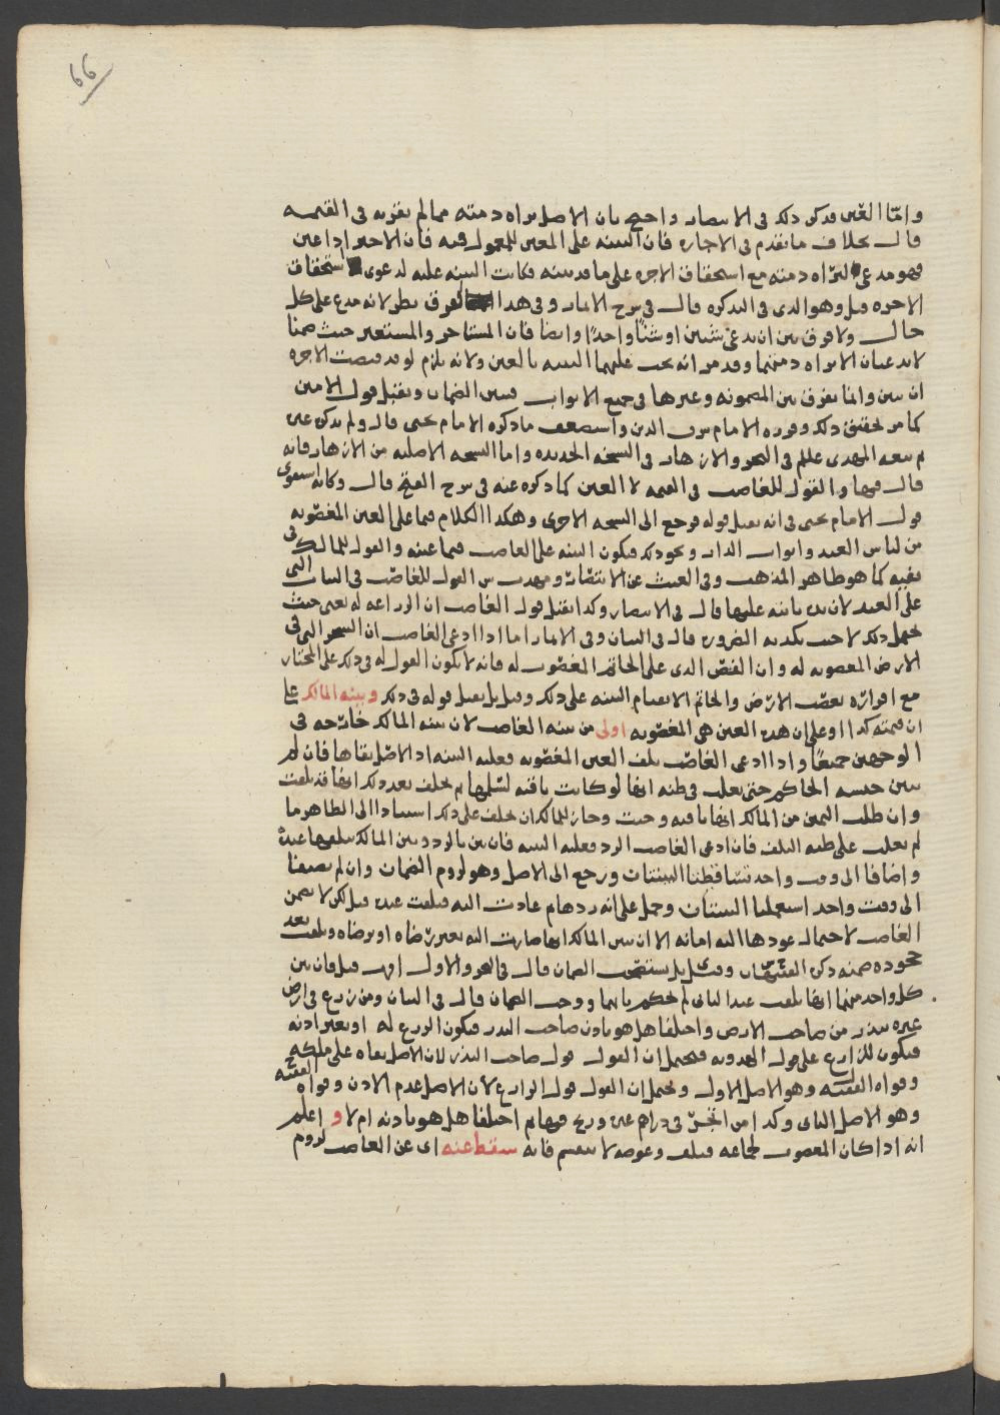 66
واما العين فذكر ذلك في الانتصار واحتج بان الاصل براه ذمته مما لم يقر به في القيمه
قال بخلاف ما تقدم في الاجاره فان البينه على المعين للمعمول فيه فان الاجير اذا عين
فهو مدعي لبراه ذمته مع استحقاق الاجره على ما قد بينه فكانت البينه عليه لدعوى استحقاق
الاجره قيل وهو الذي في التذكره قال في شرح الاثمار وفي هذا الفرق نظر لانه مدع على كل
حال ولا فرق بين ان يدعي شيئين او شيئا واحدا وايضا فان المستاجر والمستعير حيث ضمنا
لا يدعيان الا براه ذمتهما وقد مر انه يجب عليهما البينه بالعين ولانه يلزم لو قد قبضت الاجره
ان يبين وانما يفرق بين المضمونه وغيرها في جميع الابواب فيبين الضمان ويقبل قول الامين
كما مر تحقيق ذلك وقرره الامام شرف الدين واستضعف ما ذكره الامام يحيى قال ولم يذكر غير
م تبعه المهدي علىلم في البحر والازهار في النسخه الجديده واما النسخه الاصليه من الازهار فانه
قال فيها والقول للغاصب في القيمه لا العين كما ذكره عنه في شرح الفتح قال وكانه استقوى
قول الامام يحيى في انه يقبل قوله فرجع الى النسخه الاخرى وهكذا الكلام فيما على العين المغصوبه
من لباس العبد وابواب الدار ونحو ذلك فيكون البينه على الغاصب فيما عينه والقول للمالك في
نفيه كما هو ظاهر المذهب وفي الغيث عن الانتصار ومهذب ش القول للغاصب في الثياب التي
على العبد لان يده ثابته عليها قال في الانتصار وكذا يقبل قول الغاصب ان الزراعه له يعني حيث
يحتمل ذلك لا حيث يكذبه الضروره قال في البيان وفي الاثمار اما اذا ادعى الغاصب ان الشجر التي في
الارض المغصوبه له وان الفص الذي على الخاتم المغصوب له فانه لا يكون القول له في ذلك على المختار
مع اقراره بغصب الارض والخاتم الا بقيام البينه على ذلك وقيل بل يقبل قوله في ذلك وبينه المالك على
ان قيمته كذا او على ان هذه العين هي المغصوبه اولى من بينه الغاصب لان بينه المالك خارجه في
الوجهين جميعا واذا ادعى الغاصب تلف العين المغصوبه فعليه البينه اذ الاصل بقاها فان لم
يبين حبسه الحاكم حتى يغلب في ظنه انها لو كانت باقيه لسلمها ثم يحلف بعد ذلك انها قد تلفت
وان طلب اليمين من المالك انها باقيه وجبت وجاز للمالك ان يحلف على ذلك استنادا الى الظاهر ما
لم يغلب على ظنه التلف فان ادعى الغاصب الرد فعليه البينه فان بين بالرد وبين المالك بتلفها عنده
واضافا الى وقت واحد تساقطتا البينتان ورجع الى الاصل وهو لزوم الضمان وان لم يضيفا
الى وقت واحد استعملنا البينتان وحمل على انه ردها ثم عادت اليه فتلفت عنده قيل لكن لا يضمن
الغاصب لاحتمال عودها اليه امانه الا ان يبين المالك انها صارت اليه بغير رضاه او برضاه وتلفت بعد
جحوده ضمنه ذكره الفقيه س وقيل بل يستصحب الضمان قال في البحر والاول اقرب قيل فان بين
كل واحد منهما انها تلفت عند الثاني لم يحكم بايهما ووجب الضمان قال في البيان ومن زرع في ارض
غيره ببذر من صاحب الارض واختلفا هل هو باذن صاحب البذر فيكون الزرع له او بغير اذنه
فيكون للزارع على قول الهدويه فيحتمل ان القول قول صاحب البذر لان الاصل بقاه على ملكه
وقواه الفقيه وهو الاصل الاول ويحتمل ان القول قول الزارع لان الاصل عدم الاذن وقواه الفقيه
وهو الاصل الثاني وكذا من اتجر في دراهم غيره وربح فيها ثم اختلفا هل هو باذنه ام لا و اعلم
انه اذا كان المغصوب لجماعه فتلف وعوضه لا ينقسم فانه سقط عنه اي عن الغاصب لزوم